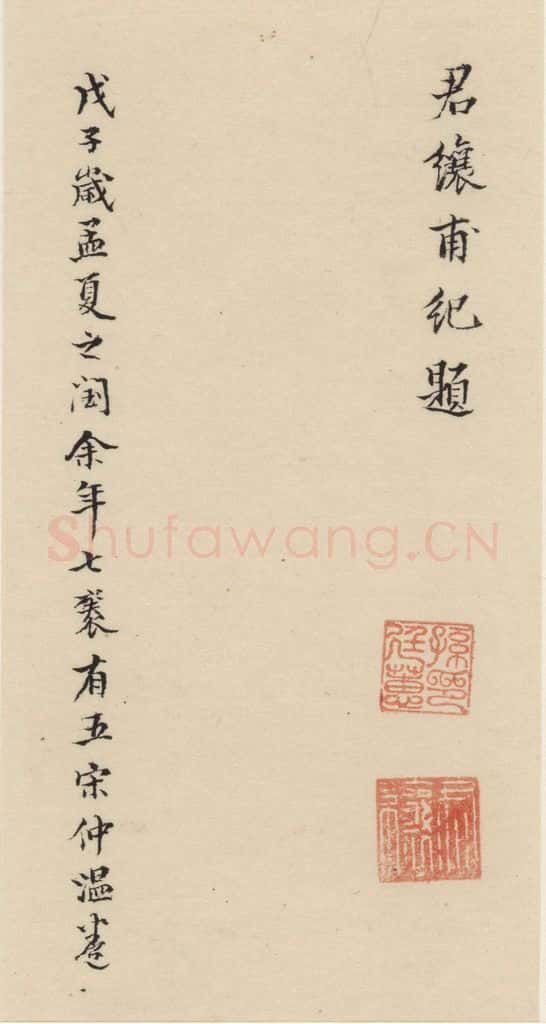 君纕甫紀題
戊子歲孟夏之閏余年七袠有五宋仲温卷
Shufawang.CN